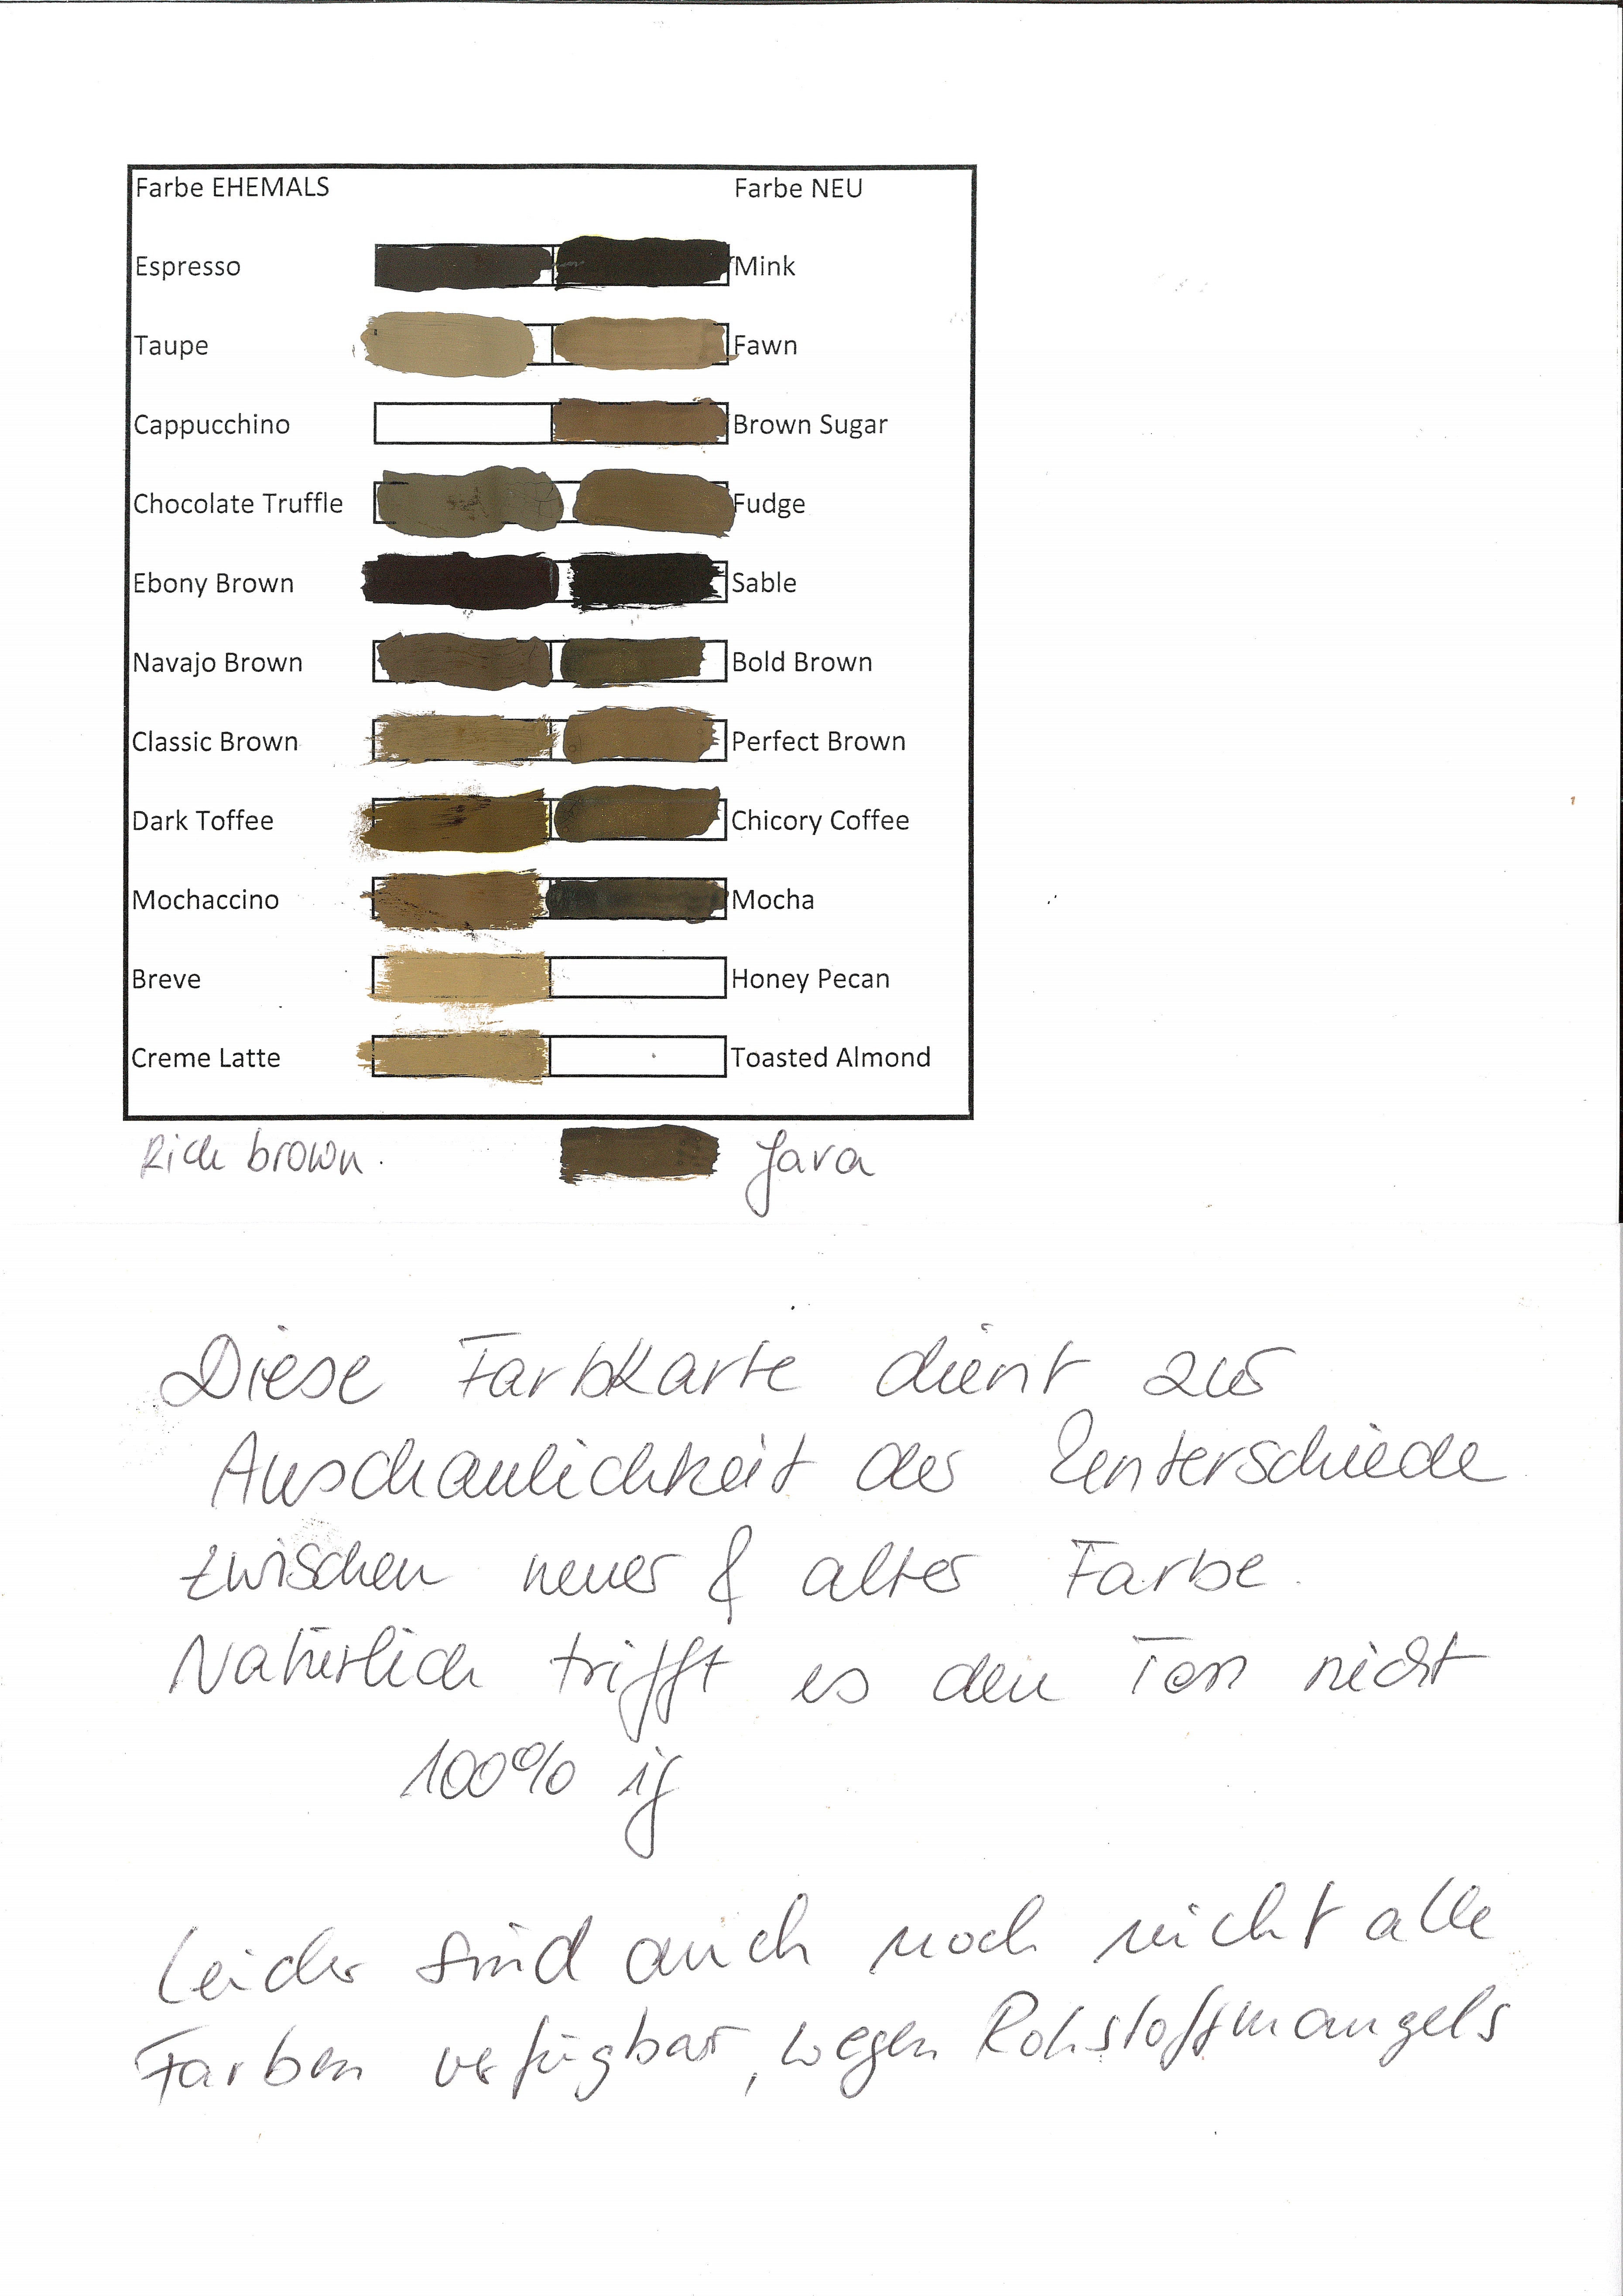 Farbe EHEMALS Farbe NEU
Espresso Mink
Taupe Fawn
Cappucchino Brown Sugar
Chocolate Truffle Fudge
Ebony Brown Sable
Navajo Brown Bold Brown
Classic Brown Perfect Brown
Dark Toffee Chicory Coffee
Mochaccino Mocha
Breve Honey Pecan
Creme Latte Toasted Almond
Rich brown. Java
Diese Farbkarte dient zur
Anschaulichkeit der Unterschiede
zwischen neuer & alter Farbe.
Natürlich trifft es den Ton nicht
100% ig
Leider sind auch noch nicht alle
Farben verfügbar, wegen Rohstoffmangels